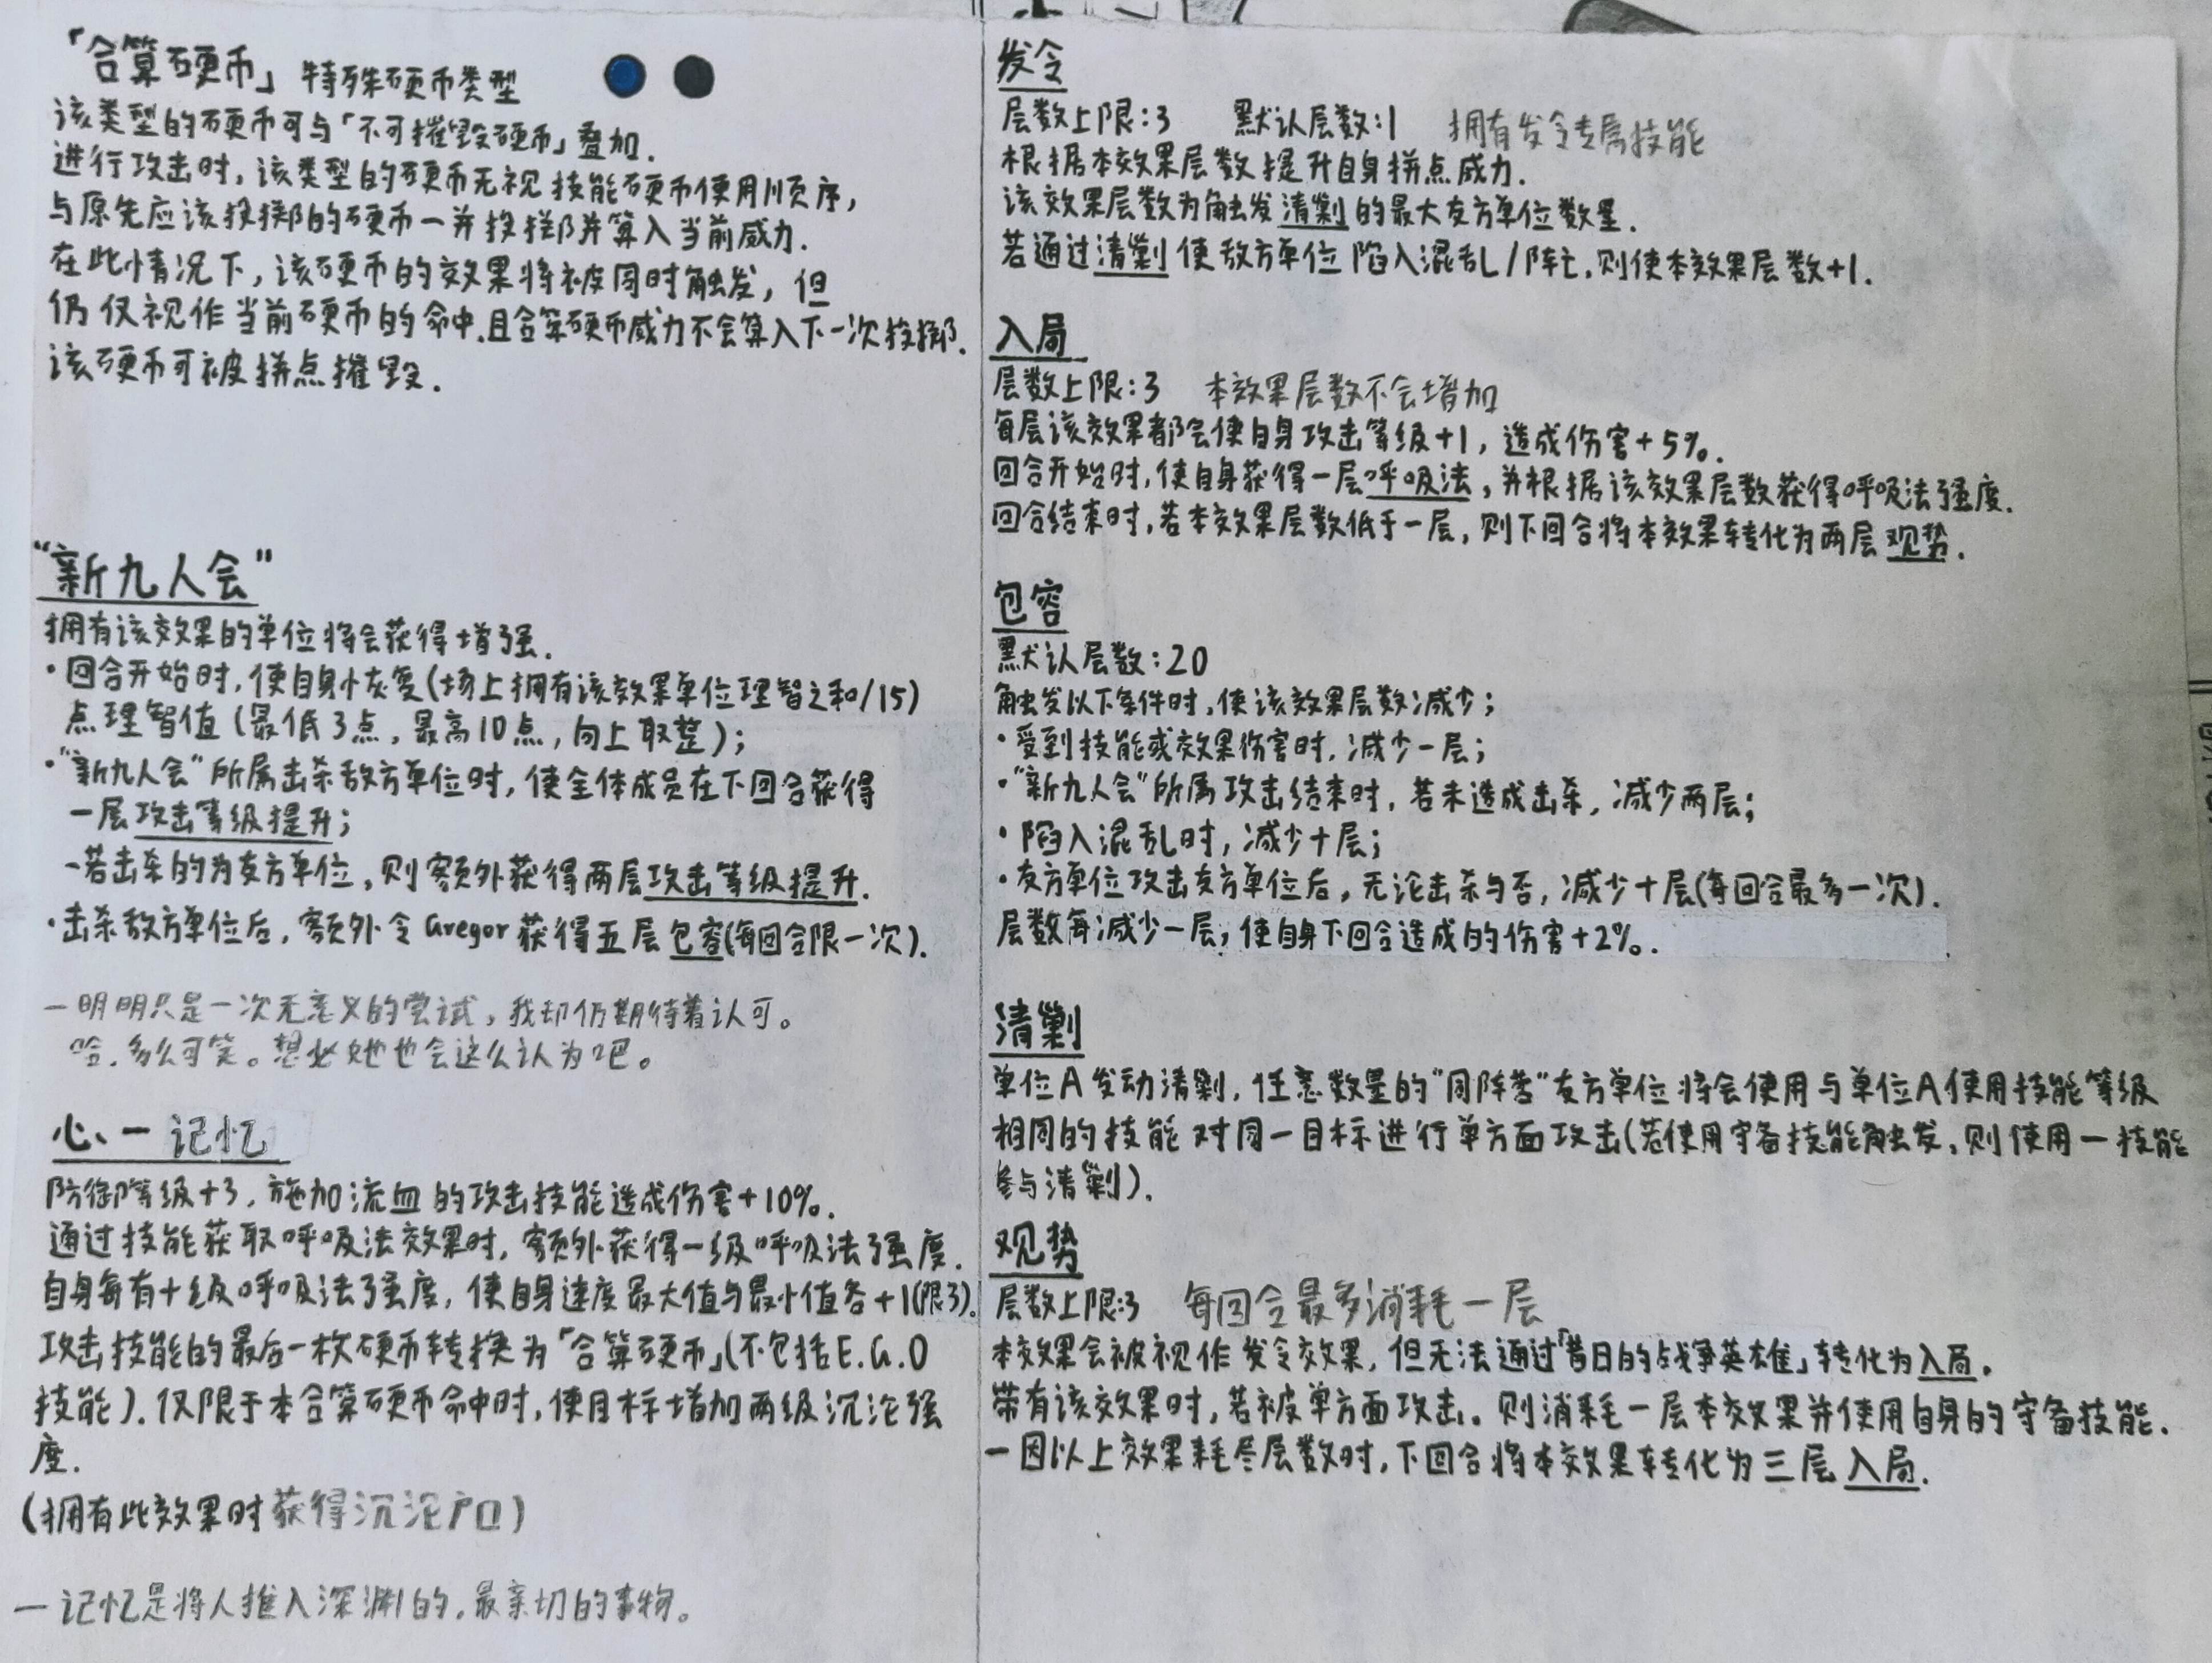 「合算硬币」 特殊硬币类型
该类型的硬币可与「不可摧毁硬币」叠加.
进行攻击时,该类型的硬币无视技能硬币使用顺序,
与原先应该投掷的硬币一并投掷并算入当前威力.
在此情况下,该硬币的效果将被同时触发,但
仍仅视作当前硬币的命中.且合算硬币威力不会算入下一次投掷.
该硬币可被拼点摧毁.
“新九人会”
拥有该效果的单位将会获得增强.
·回合开始时,使自身恢复(场上拥有该效果单位理智之和/15)
点理智值(最低3点,最高10点,向上取整);
·“新九人会”所属击杀敌方单位时,使全体成员在下回合获得
一层攻击等级提升;
-若击杀的为友方单位,则额外获得两层攻击等级提升.
·击杀敌方单位后,额外令Gregor获得五层包容(每回合限一次).
—明明只是一次无意义的尝试,我却仍期待着认可。
哈.多么可笑。想必她也会这么认为吧。
心、一 记忆
防御等级+3,施加流血的攻击技能造成伤害+10%.
通过技能获取呼吸法效果时,额外获得一级呼吸法强度.
自身每有十级呼吸法强度,使自身速度最大值与最小值各+1(限3).
攻击技能的最后一枚硬币转换为「合算硬币」(不包括E.G.O
技能).仅限于本合算硬币命中时,使目标增加两级沉沦强
度.
(拥有此效果时获得沉沦户口)
—记忆是将人推入深渊的,最亲切的事物。
发令
层数上限:3 默认层数:1 拥有发令专属技能
根据本效果层数提升自身拼点威力.
该效果层数为触发清剿的最大友方单位数量.
若通过清剿使敌方单位陷入混乱/阵亡,则使本效果层数+1.
入局
层数上限:3 本效果层数不会增加
每层该效果都会使自身攻击等级+1,造成伤害+5%.
回合开始时,使自身获得一层呼吸法,并根据该效果层数获得呼吸法强度.
回合结束时,若本效果层数低于一层,则下回合将本效果转化为两层观势.
包容
默认层数:20
触发以下条件时,使该效果层数减少;
·受到技能或效果伤害时,减少一层;
·“新九人会”所属攻击结束时,若未造成击杀,减少两层;
·陷入混乱时,减少十层;
·友方单位攻击友方单位后,无论击杀与否,减少十层(每回合最多一次).
层数每减少一层,使自身下回合造成的伤害+2%.
清剿
单位A发动清剿,任意数量的“同阵营”友方单位将会使用与单位A使用技能等级
相同的技能对同一目标进行单方面攻击(若使用守备技能触发,则使用一技能
参与清剿).
观势
层数上限:3 每回合最多消耗一层
本效果会被视作发令效果,但无法通过「昔日的战争英雄」转化为入局.
带有该效果时,若被单方面攻击。则消耗一层本效果并使用自身的守备技能.
—因以上效果耗尽层数时,下回合将本效果转化为三层入局.